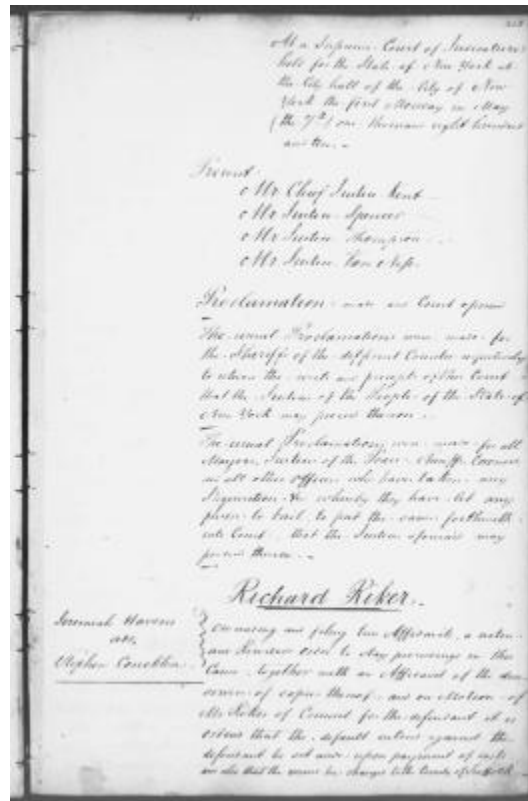 At a Supreme Court of Judicature
held for the State of New York at
the City hall of the City of New
York the first Monday in May
(the 7th) one thousand eight hundred
and ten. -
Present
Mr. Chief Justice Kent
Mr Justice Spencer
Mr Justice Thompson
Mr Justice Van Ness
Proclamation made and Court opened
The usual Proclamations were made for
the Sheriffs of the different Counties respectively
to return the writs and precepts of this Court
that the Justices of the People of the State of
New York may proceed thereon
The usual Proclamations were made for all
Mayors, Justices of the Peace Sheriffs Coroners
and all other officers who have taken any
Recognizance &c whereby they have let any
person to bail to put the same forthwith
into Court that the Justices aforesaid may
proceed thereon. -
Richard Riker.
Jeremiah Havens
ads.
Stephen Conckling
On reading and filing two Affidavits, a notice
and order to stay proceedings in this
Cause, together with an Affidavit of the due
service of copies thereof, and on Motion of
Mr Riker of Counsel for the defendant it is
ordered that the default entered against the
defendant be set aside upon payment of costs
and also that the venue be changed to the County of Suffolk